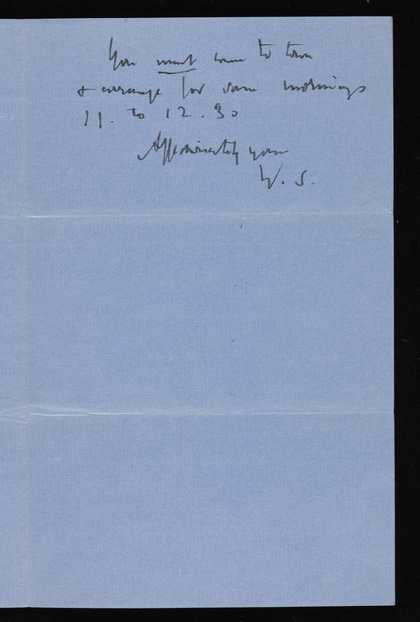 You must come to town
& arrange for some mornings
11. to 12.30
Affectionately yours
W. S.